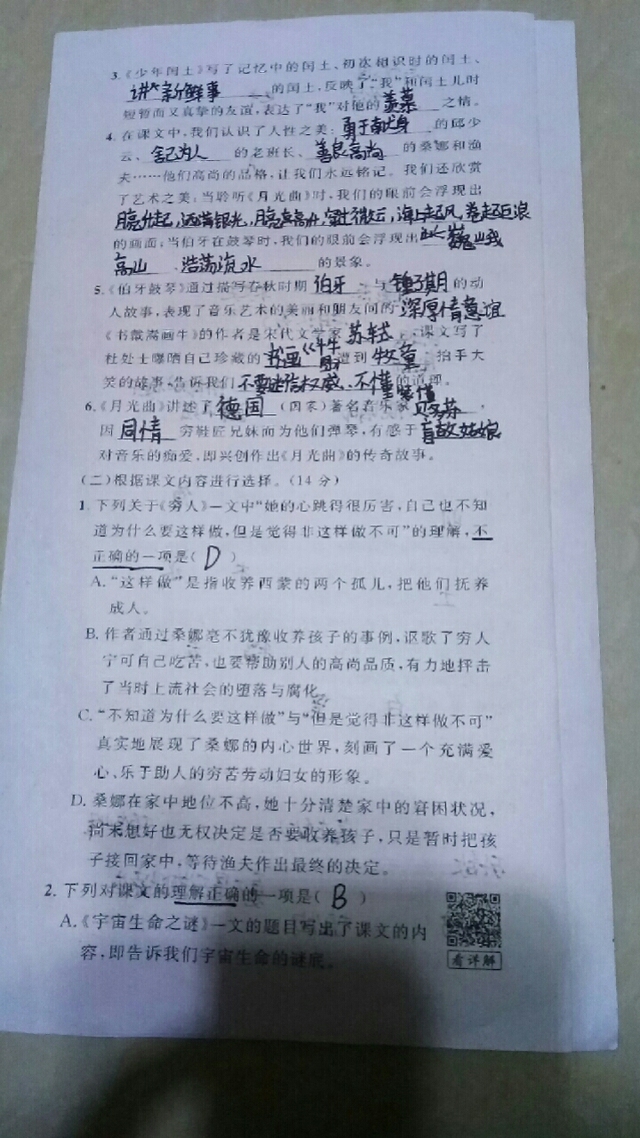 3.《少年闰土》写了记忆中的闰土、初次相识时的闰土、
讲新鲜事的闰土,反映了“我”和闰土儿时
短暂而又真挚的友谊,表达了“我”对他的羡慕之情。
4.在课文中,我们认识了人性之美:勇于献身的邱少
云、舍己为人的老班长、善良高尚的桑娜和渔
夫……他们高尚的品格,让我们永远铭记。我们还欣赏
了艺术之美:当聆听《月光曲》时,我们的眼前会浮现出
月亮升起,洒满银光,月亮高升,穿过微云,海上起风,卷起巨浪
的画面;当伯牙在鼓琴时,我们的眼前会浮现出巍峨
高山、浩荡流水的景象。
5.《伯牙鼓琴》通过描写春秋时期伯牙与锺子期的动
人故事,表现了音乐艺术的美丽和朋友间的深厚情意谊
《书戴嵩画牛》的作者是宋代文学家苏轼,课文写了
杜处士曝晒自己珍藏的书画《牛》图遭到牧童拍手大
笑的故事,告诉我们不要迷信权威、不懂装懂的道理。
6.《月光曲》讲述了德国(国家)著名音乐家贝多芬,
因同情穷鞋匠兄妹而为他们弹琴,有感于盲姑娘
对音乐的痴爱,即兴创作出《月光曲》的传奇故事。
(二)根据课文内容进行选择。(14分)
1.下列关于《穷人》一文中“她的心跳得很厉害,自己也不知
道为什么要这样做,但是觉得非这样做不可”的理解,不
正确的一项是(D)
A.“这样做”是指收养西蒙的两个孤儿,把他们抚养
成人。
B.作者通过桑娜毫不犹豫收养孩子的事例,讴歌了穷人
宁可自己吃苦,也要帮助别人的高尚品质,有力地抨击
了当时上流社会的堕落与腐化。
C.“不知道为什么要这样做”与“但是觉得非这样做不可”
真实地展现了桑娜的内心世界,刻画了一个充满爱
心、乐于助人的穷苦劳动妇女的形象。
D.桑娜在家中地位不高,她十分清楚家中的窘困状况,
尚未想好也无权决定是否要收养孩子,只是暂时把孩
子接回家中,等待渔夫作出最终的决定。
2.下列对课文的理解正确的一项是(B)
A.《宇宙生命之谜》一文的题目写出了课文的内
容,即告诉我们宇宙生命的谜底。
看详解